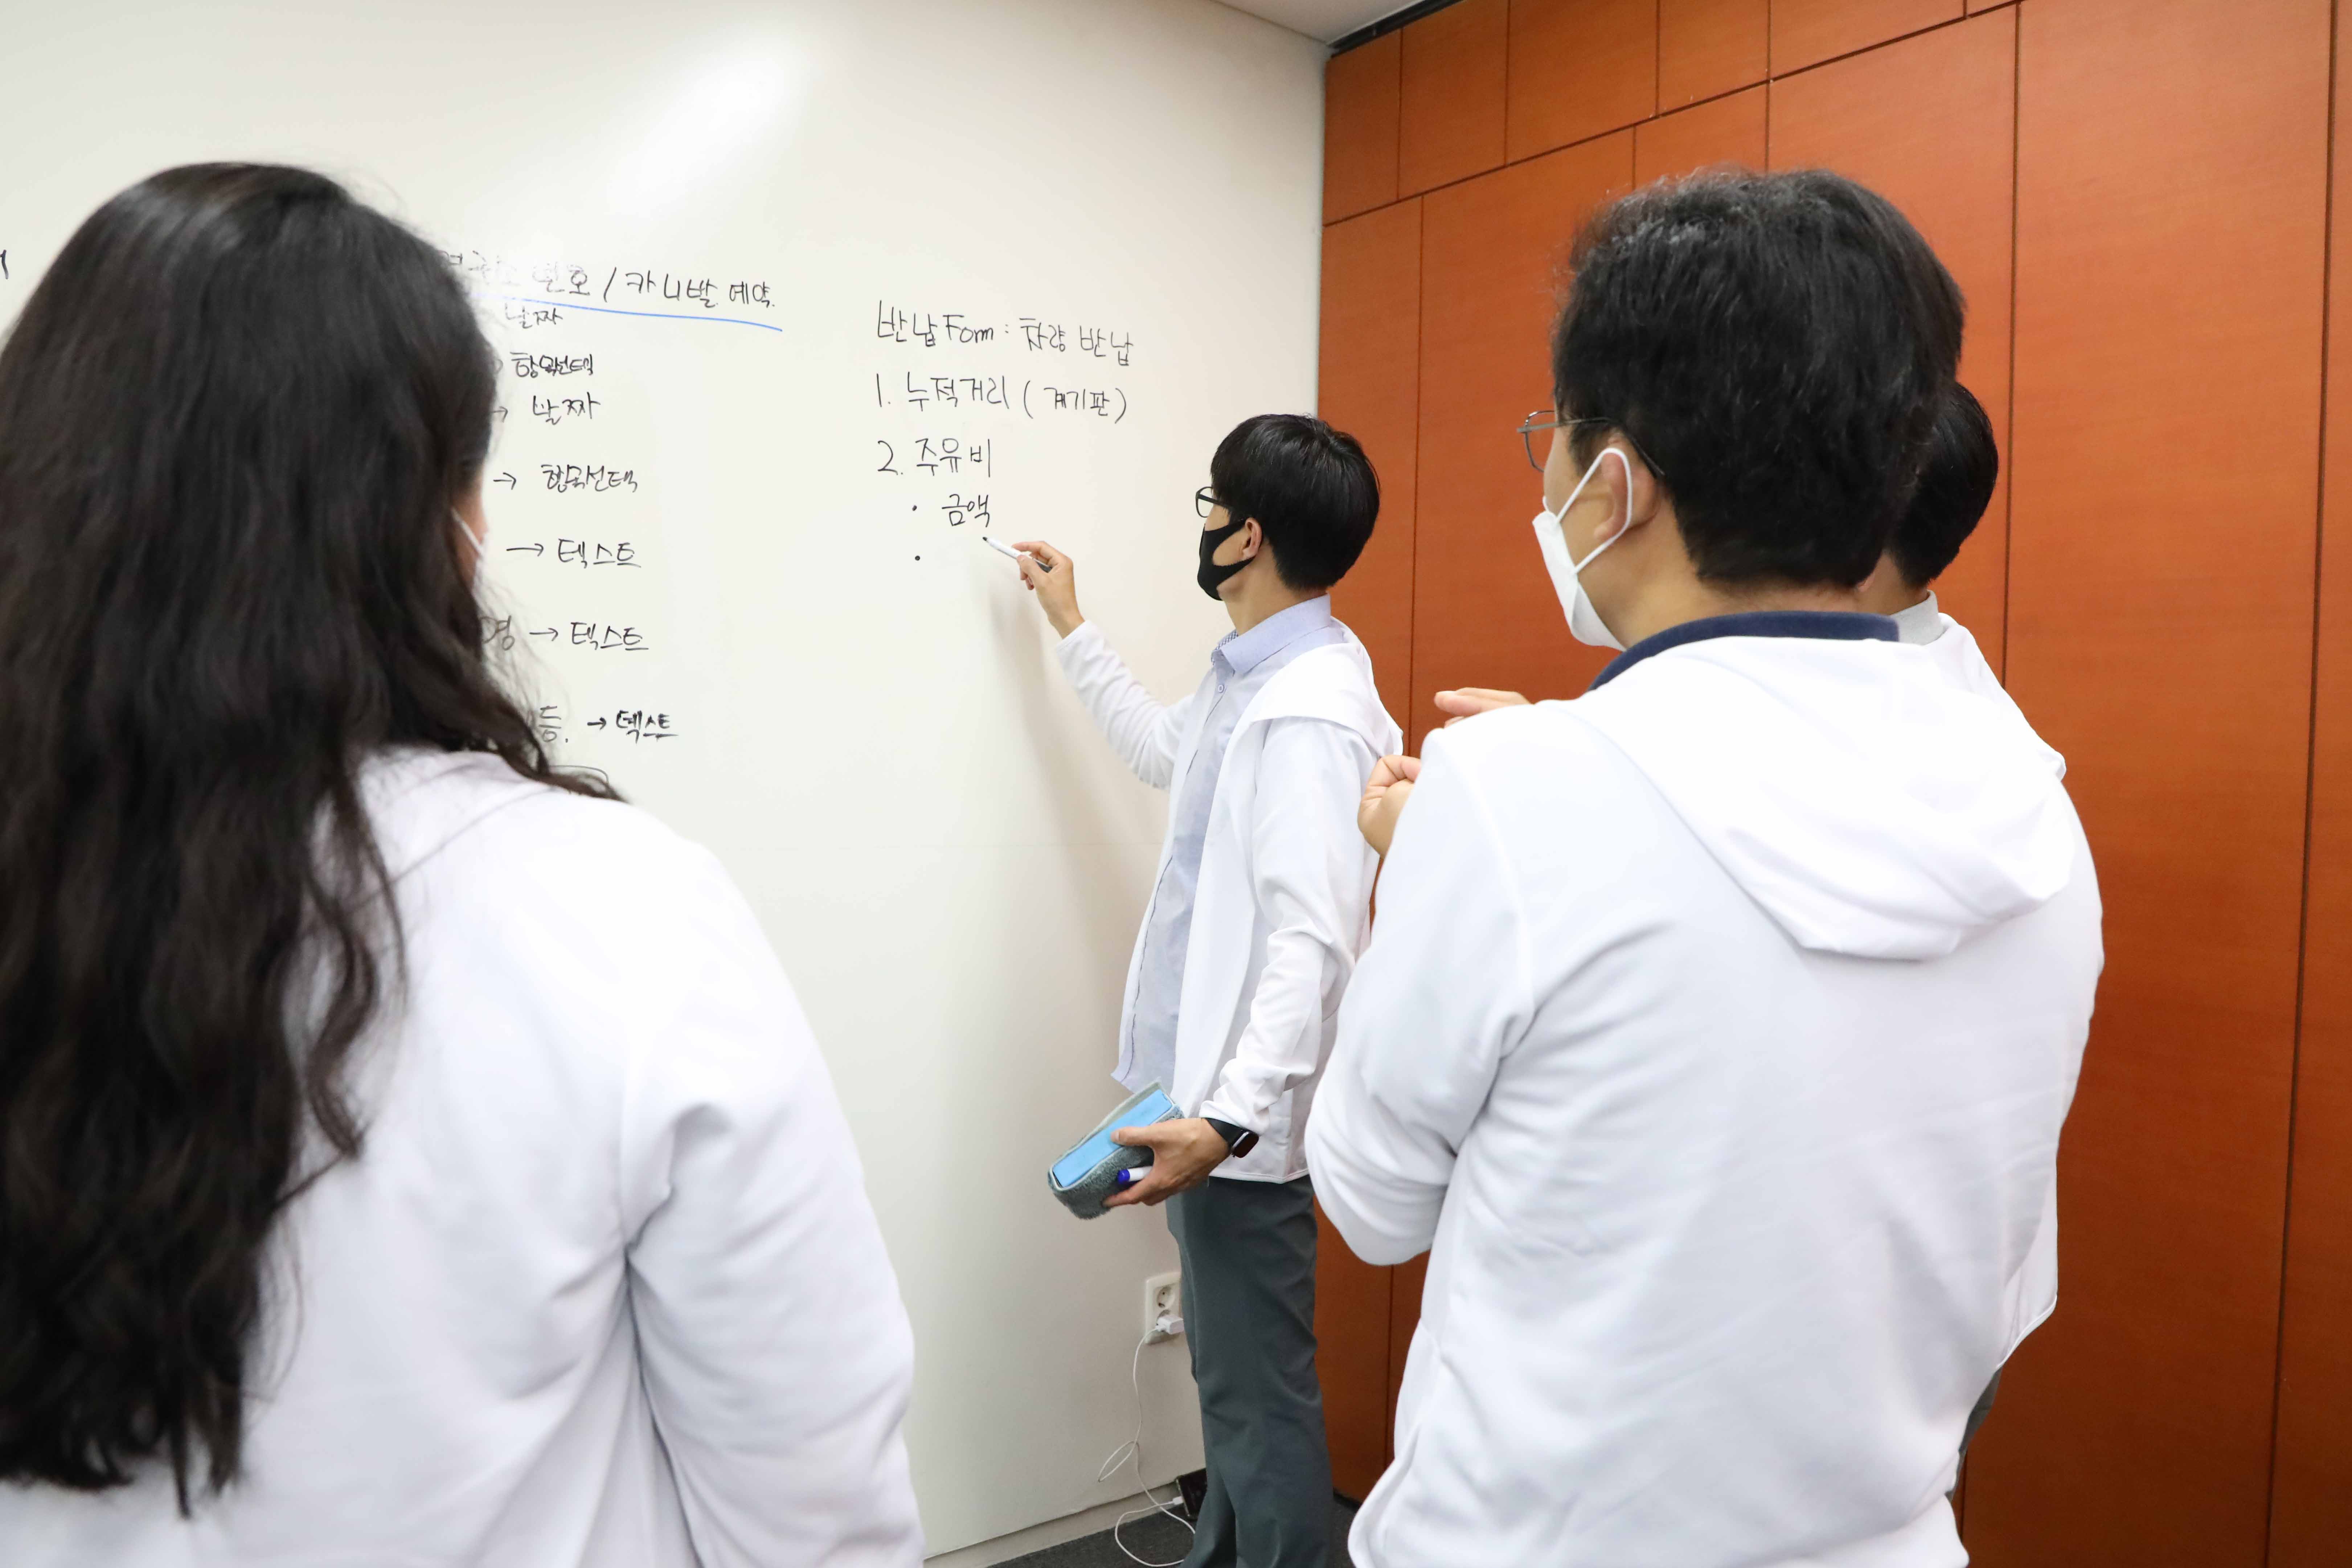 / 카니발 예약.
날짜
항목선택
→ 날짜
→ 항목선택
→ 텍스트
명 → 텍스트
등. → 텍스트
반납 Form : 차량 반납
1. 누적거리 ( 계기판 )
2. 주유비
• 금액
•